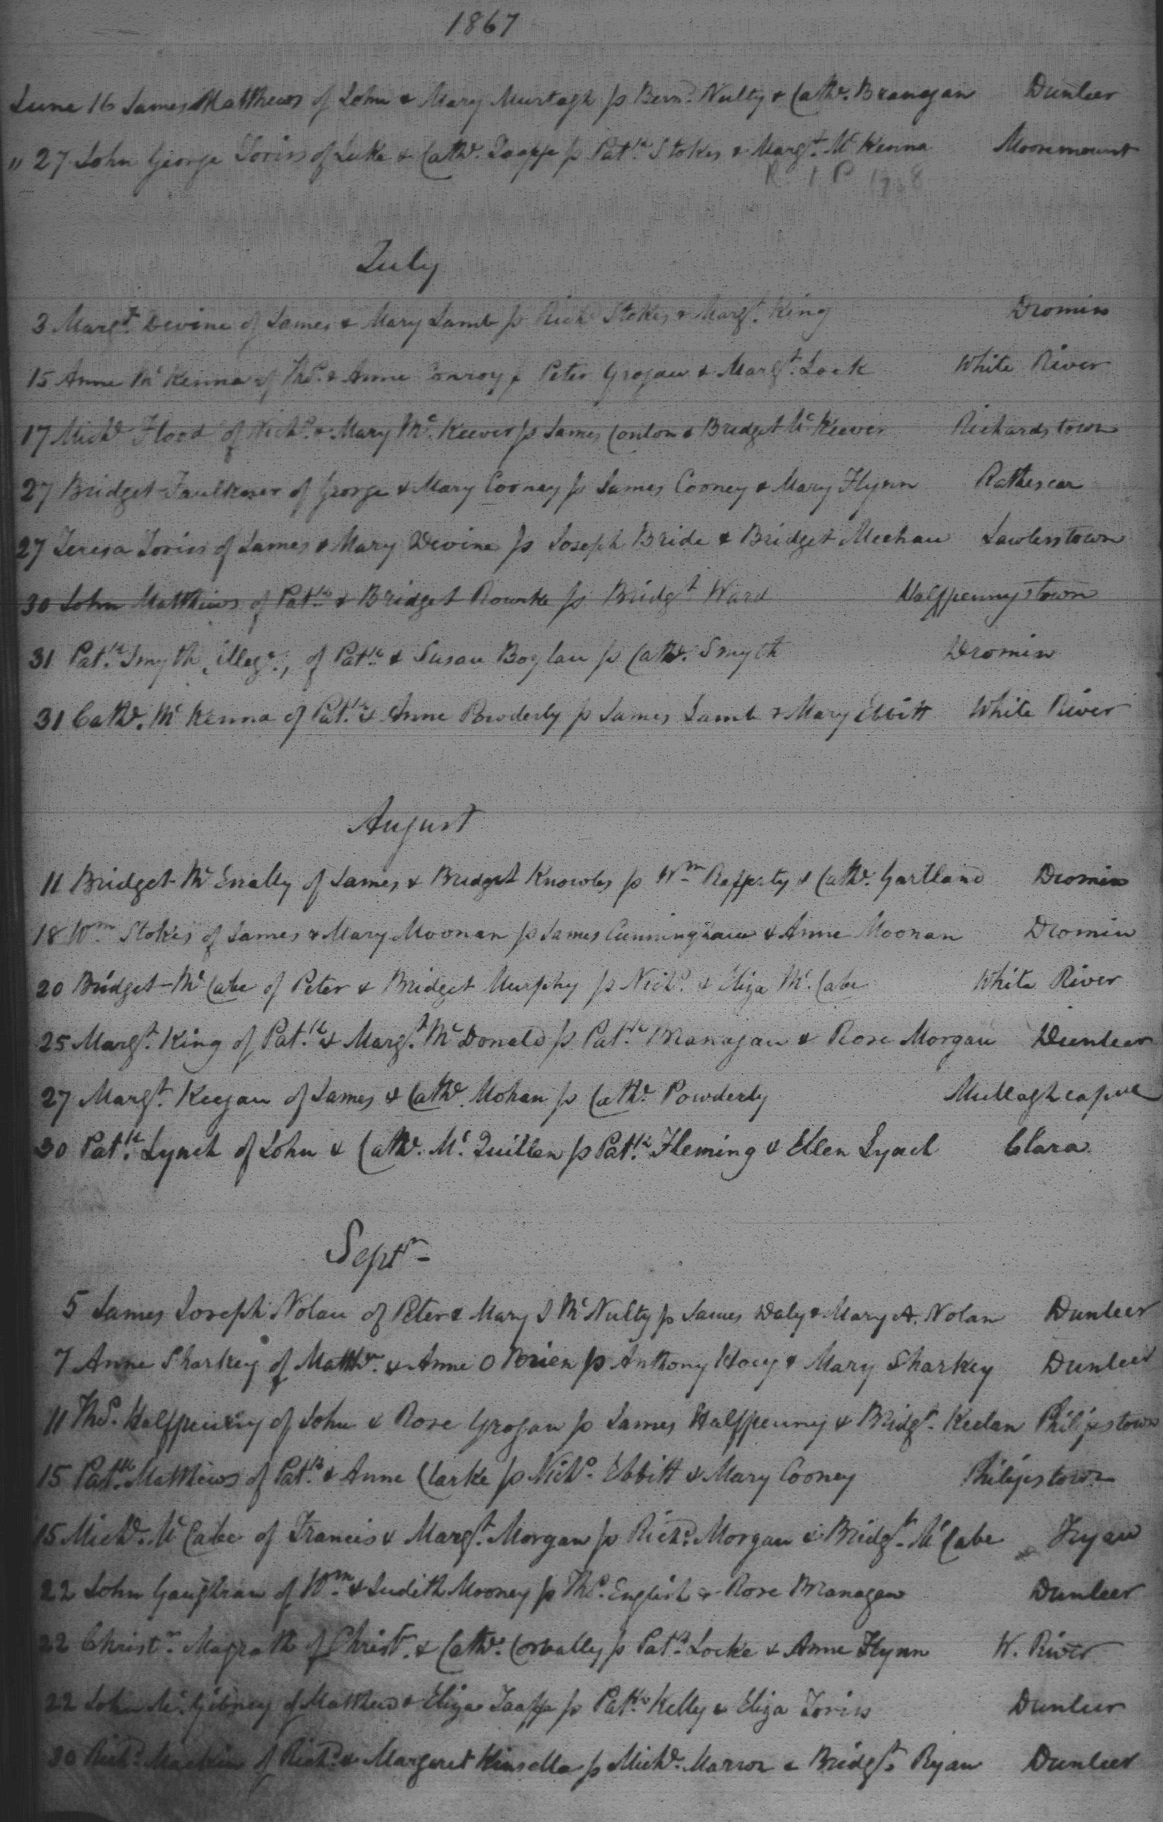 1867
June 16 James Matthews of John & Mary Murtagh ss Bernd. Nulty & Cathe. Branagan Dunleer
" 27 John George Toriss of Luke & Cathe. Taaffe ss Patk. Stokes & Margt. McKenna Mooremount
R I P 1968
July
3 Margt. Devine of James & Mary Lamb ss Richd Stokes & Margt. King Dromin
15 Anne McKenna of Thos. & Anne Conroy ss Peter Grogan & Margt. Lock White River
17 Michl Flood of Nichs. & Mary McKeever ss James Conlon & Bridget McKeever Richardstown
27 Bridget Faulkner of George & Mary Cooney ss James Cooney & Mary Flynn Rathescar
27 Teresa Toriss of James & Mary Devine ss Joseph Bride & Bridget Meehan Lawlesstown
30 John Matthews of Patk. & Bridget Rourke ss Bridgt Ward Halfpennystown
31 Patk. Smyth, illegt., of Patk. & Susan Boylan ss Cathe. Smyth Dromin
31 Cathe. McKenna of Patk. & Anne Powderly ss James Lamb & Mary Ebbitt White River
August
11 Bridget McEnally of James & Bridget Knowles ss Wm Rafferty & Cathe. Gartland Dromin
18 Wm Stokes of James & Mary Moonan ss James Cunningham & Anne Moonan Dromin
20 Bridget McCabe of Peter & Bridget Murphy ss Nichs. & Eliza McCabe White River
25 Margt. King of Patk. & Margt. McDonald ss Patk. Branagan & Rose Morgan Dunleer
27 Margt. Keegan of James & Cathe. Mohan ss Cathe. Powderly Mullaghcapul
30 Patk. Lynch of John & Cathe. McQuillan ss Patk. Fleming & Ellen Lynch Clara
Septr
5 James Joseph Nolan of Peter & Mary J McNulty ss James Daly & Mary A. Nolan Dunleer
7 Anne Sharkey of Matthw. & Anne O Brien ss Anthony Hoey & Mary Sharkey Dunleer
11 Thos. Halfpenny of John & Rose Grogan ss James Halfpenny & Bridgt. Keelan Philipstown
15 Patk. Matthews of Patk. & Anne Clarke ss Nichs. Ebbitt & Mary Cooney Philipstown
15 Michl. McCabe of Francis & Margt. Morgan ss Richd. Morgan & Bridgt. McCabe Fryan
22 John Gaughran of Wm & Judith Mooney ss Thos. English & Rose Branagan Dunleer
22 Christr. Magrath of Christr. & Cathe. Corvally ss Patk. Locke & Anne Flynn W. River
22 John McGibney of Matthew & Eliza Taaffe ss Patk. Kelly & Eliza Toriss Dunleer
30 Richd. Mackin of Richd. & Margaret Kinsella ss Michl. Marron & Bridgt. Ryan Dunleer